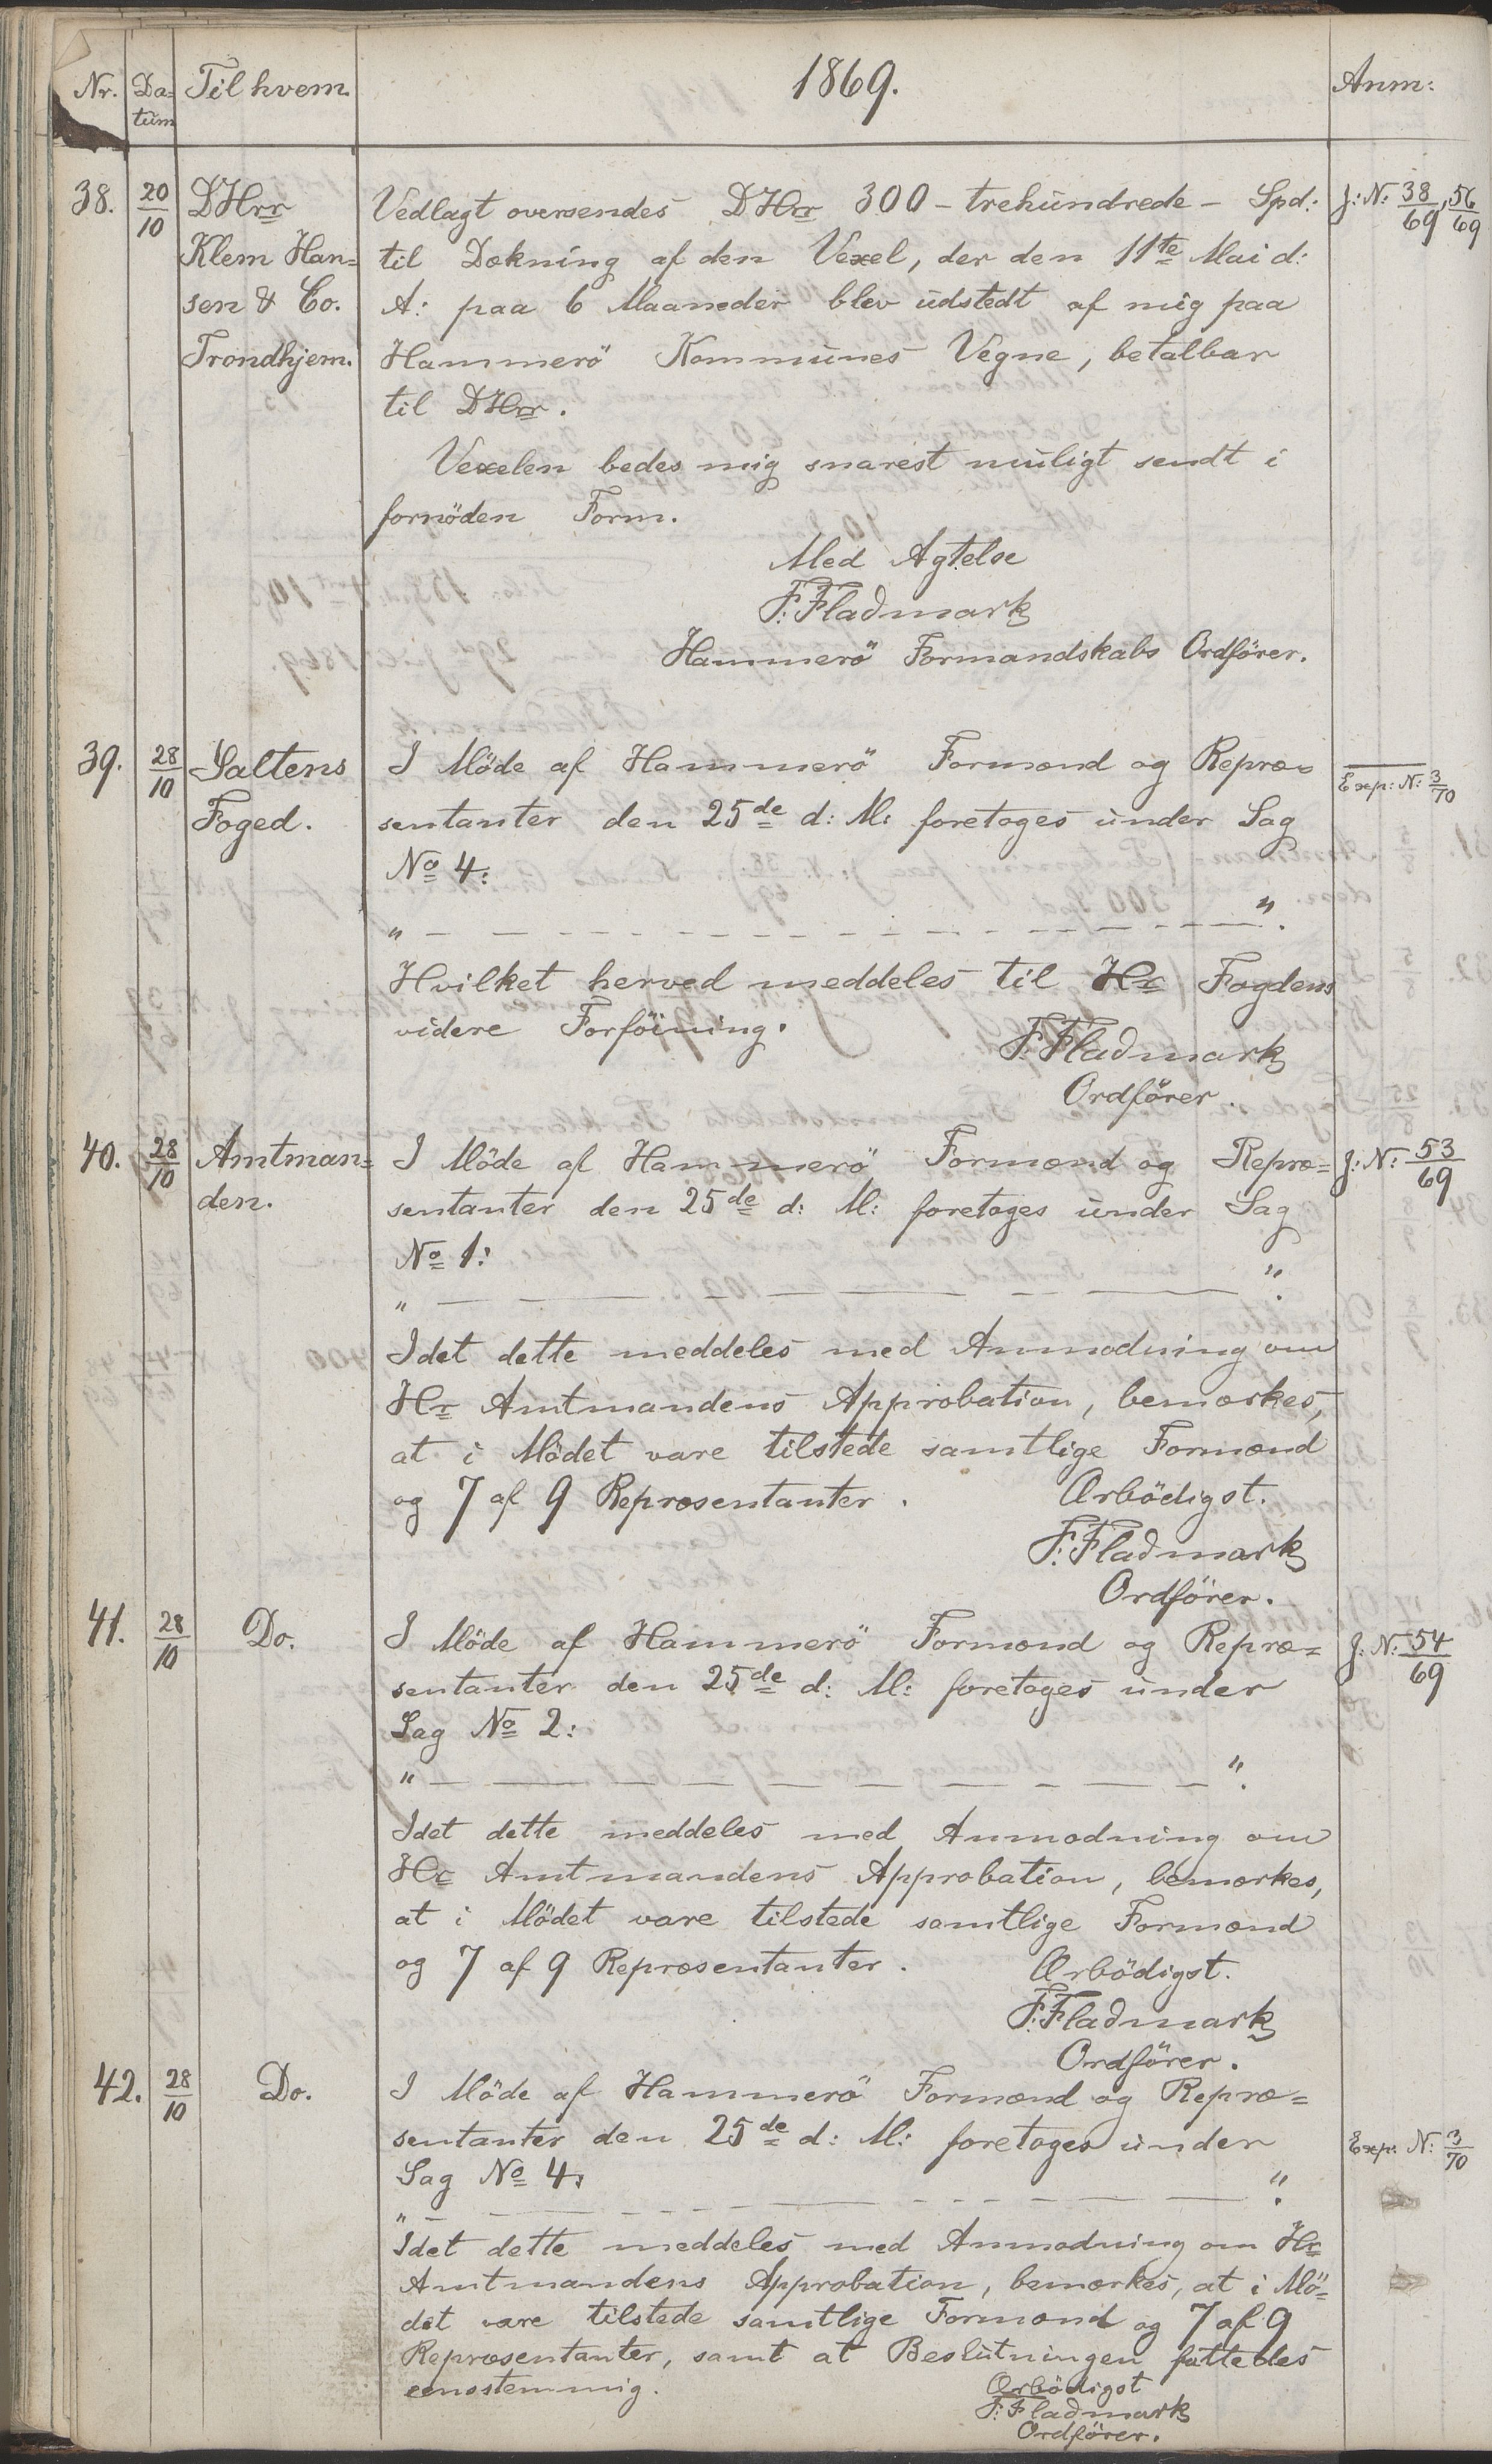 Nr. Da= Til hvem. 1869. Anm:
tum
38. 20/10 DHrr Vedlagt oversendes DHrr 300 - trehundrede - Spd: J: N: 38/69, 56/69
Klem Han= til Dækning af den Vexel, der den 11te Mai d:
sen & Co. A: paa 6 Maaneder blev udstedt af mig paa
Trondhjem. Hammerö Kommunes Vegne, betalbar
til DHrr.
Vexelen bedes mig snarest muligt sendt i
fornöden Form.
Med Agtelse
F. Fladmark
Hammerö Formandskabs Ordförer.
39. 28/10 Saltens I Möde af Hammerö Formænd og Repræ= Exp: N: 3/70
Foged. sentanter den 25de d: M: foretoges under Sag
No 4:
" — — — — — — — — — — — — ".
Hvilket herved meddeles til Hr Fogdens
videre Forföining.
F. Fladmark
Ordförer.
40. 28/10 Amtman= I Möde af Hammerö Formænd og Repræ= J: N: 53/69
den. sentanter den 25de d: M: foretoges under Sag
No 1:
" — — — — — — — — ".
Idet dette meddeles med Anmodning om
Hr Amtmandens Approbation, bemærkes,
at i Mödet vare tilstede samtlige Formænd
og 7 af 9 Repræsentanter. Ærbödigst.
F. Fladmark
Ordförer.
41. 28/10 Do. I Möde af Hammerö Formænd og Repræ= J: N: 54/69
sentanter den 25de d: M: foretoges under
Sag No 2:
" — — — — — — — — — ".
Idet dette meddeles med Anmodning om
Hr Amtmandens Approbation, bemærkes,
at i Mödet vare tilstede samtlige Formænd
og 7 af 9 Repræsentanter. Ærbödigst.
F. Fladmark
Ordförer.
42. 28/10 Do. I Möde af Hammerö Formænd og Repræ=
sentanter den 25de d: M: foretoges under Exp: N: 3/70
Sag No 4:
" — — — — — — — — — ".
Idet dette meddeles med Anmodning om Hr
Amtmandens Approbation, bemærkes, at i Mö=
det vare tilstede samtlige Formænd og 7 af 9
Repræsentanter, samt at Beslutningen fattedes
eenstemmig. Ærbödigst
F. Fladmark
Ordförer.